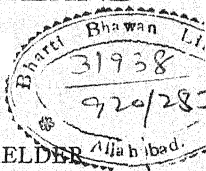 Bharti Bhawan Li
31938
920/283
Allahabad.
ELDER